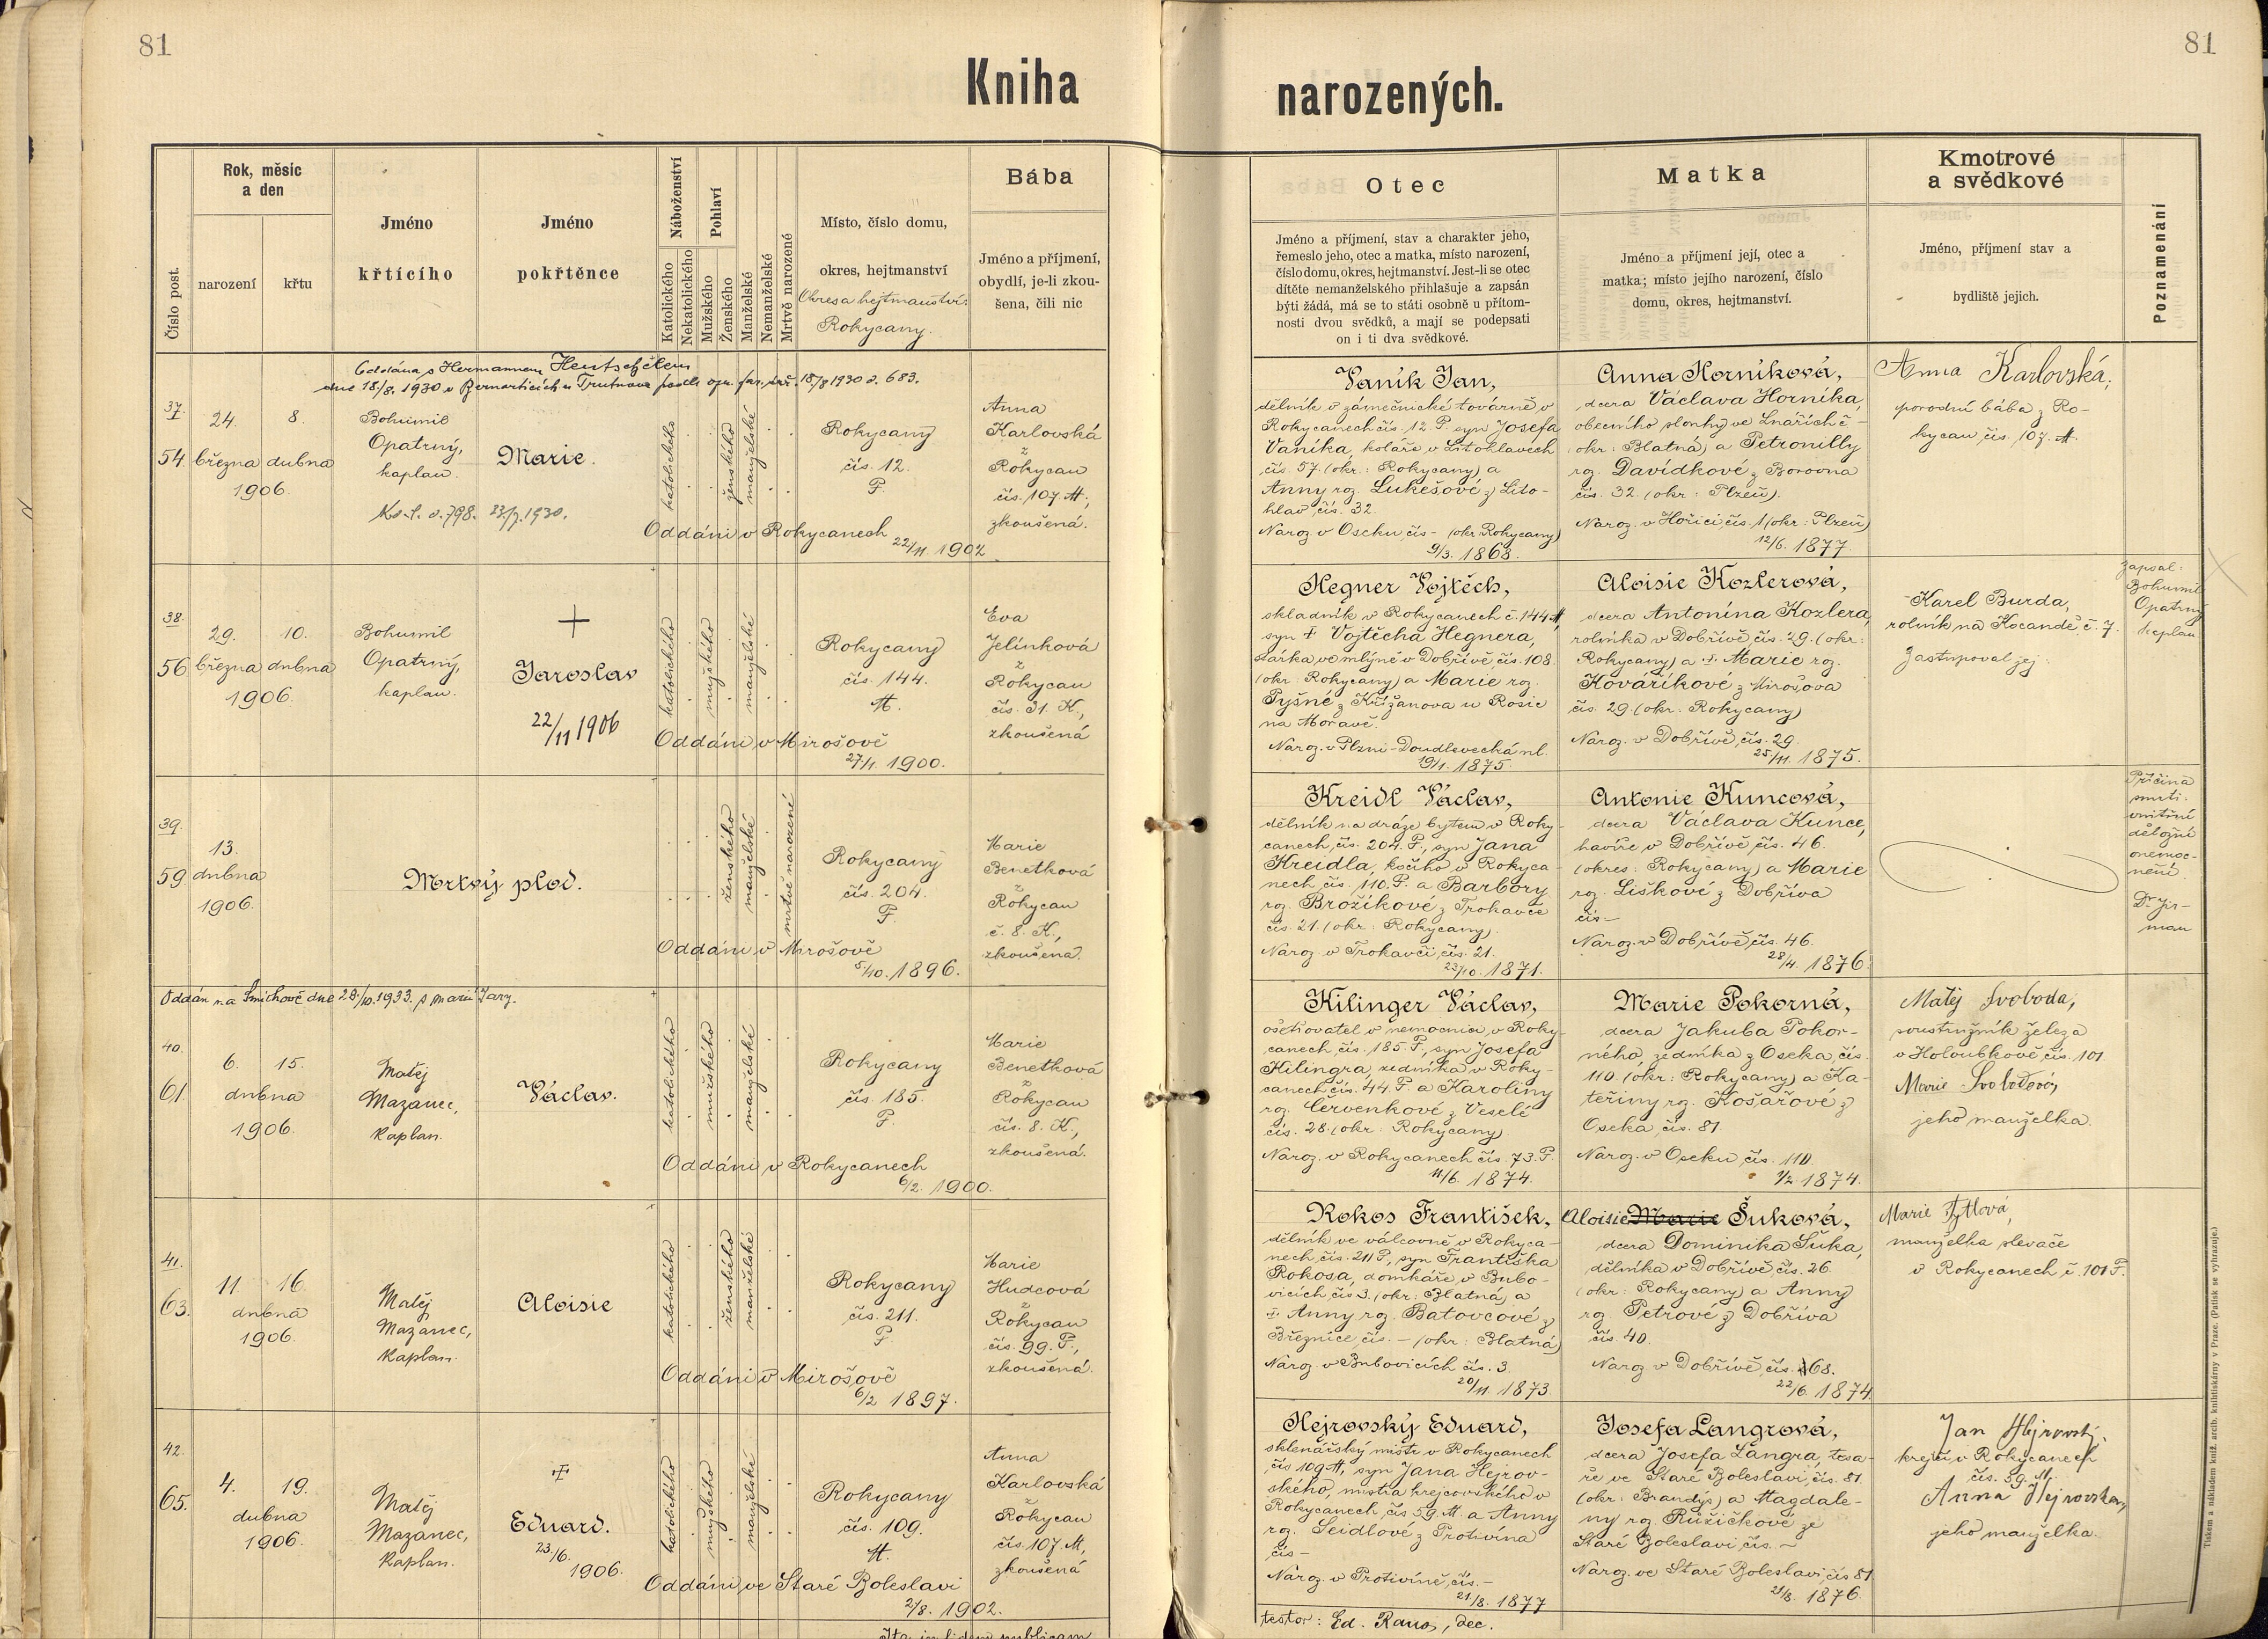 81
81
Kniha
narozených.
Číslo post.
Rok, měsíc
a den
narození
křtu
Jméno
křtícího
Jméno
pokřtěnce
Náboženství
Katolického
Nekatolického
Pohlaví
Mužského
Ženského
Manželské
Nemanželské
Mrtvě narozené
Místo, číslo domu,
okres, hejtmanství
Okres a hejtmanství:
Rokycany.
Bába
Jméno a příjmení,
obydlí, je-li zkou-
šena, čili nic
Otec
Jméno a příjmení, stav a charakter jeho,
řemeslo jeho, otec a matka, místo narození,
číslo domu, okres, hejtmanství. Jest-li se otec
dítěte nemanželského přihlašuje a zapsán
býti žádá, má se to státi osobně u přítom-
nosti dvou svědků, a mají se podepsati
on i ti dva svědkové.
Matka
Jméno a příjmení její, otec a
matka; místo jejího narození, číslo
domu, okres, hejtmanství.
Kmotrové
a svědkové
Jméno, příjmení stav a
bydliště jejich.
Poznamenání
Oddána s Hermannem Hentschelem
dne 18/8. 1930 v Bernarticích u Trutnova podle 18/8 1930 č. 683.
37
54.
24.
března
8.
dubna
1906.
Bohumil
Opatrný,
kaplan.
Marie.
23/7. 1930.
katolického
ženského
manželské
Rokycany
čís. 12.
P.
Oddáni v Rokycanech
22/11. 1902
Anna
Karlovská
z
Rokycan
čís. 107 M.,
zkoušená.
Vaník Jan,
dělník v zámečnické továrně v
Rokycanech čís. 12. P. syn Josefa
Vaníka, koláře v Litohlavech
čís. 57 (okr: Rokycany) a
Anny roz. Lukešové z Lito-
hlav čís. 32.
Naroz. v Oseku, čís - (okr. Rokycany)
9/3. 1868.
Anna Horníková,
dcera Václava Horníka,
obecního ve Lnářích č -
(okr: Blatná) a Petronilly
roz. Davídkové z Borovna
čís. 32. (okr: Plzeň).
Naroz. v Hořici čís. 1 (okr: Plzeň)
12/6. 1877.
Anna Karlovská,
porodní bába z Ro-
kycan čís. 107. M.
38.
56
29.
března
10.
dubna
1906.
Bohumil
Opatrný,
kaplan.
+
Jaroslav
22/11 1906
katolického
mužského
manželské
Rokycany
čís. 144.
M.
Oddáni v Mirošově
27/1. 1900.
Eva
Jelínková
z
Rokycan
čís. 31. K.,
zkoušená
Hegner Vojtěch,
skladník v Rokycanech č. 144 M,
syn † Vojtěcha Hegnera,
stárka ve mlýně v Dobřívě, čís. 108.
(okr: Rokycany) a Marie roz.
Tyšné z Křižanova u Rosic
na Moravě.
Naroz. v Plzni - Doudlevecká ul.
19/1. 1875.
Aloisie Kozlerová,
dcera Antonína Kozlera,
rolníka v Dobřívě čís. 29. (okr:
Rokycany) a † Marie roz.
Kovaříkové z Mirošova
čís. 29 (okr: Rokycany)
Naroz. v Dobřívě, čís. 29.
25/11. 1875.
Karel Burda,
rolník na Kocandě, č. 7.
Zastupoval jej:
Zapsal:
Bohumil
Opatrný
kaplan
39.
59.
13.
dubna
1906.
Mrtvý plod.
ženského
manželské
mrtvě narozené
Rokycany
čís. 204.
P
Oddáni v Mirošově
5/10. 1896.
Marie
Benetková
z
Rokycan
č. 8. K.,
zkoušená.
Kreidl Václav,
dělník na dráze bytem v Roky-
canech, čís. 204. P., syn Jana
Kreidla, kočího v Rokyca-
nech, čís. 110. P. a Barbory
roz. Brožíkové z Trokavce
čís. 21. (okr: Rokycany).
Naroz. v Trokavci, čís. 21.
23/10. 1871.
Antonie Kuncová,
dcera Václava Kunce,
havíře v Dobřívě čís. 46.
(okres: Rokycany) a Marie
roz. Liškové z Dobříva
čís -
Naroz. v Dobřívě, čís. 46.
28/4. 1876.
Příčina
smrti:
vnitřní
děložní
onemoc-
nění.
Oddán na Smíchově dne 28./10. 1933. s Marií
40.
61.
6.
15.
dubna
1906.
Matěj
Mazanec,
kaplan.
Václav.
katolického
mužského
manželské
Rokycany
čís. 185.
P.
Oddáni v Rokycanech
6/2. 1900.
Marie
Benetková
z
Rokycan
čís. 8. K.,
zkoušená.
Kilinger Václav,
ošetřovatel v nemocnici v Roky-
canech, čís. 185. P., syn Josefa
Kilingra, zedníka v Roky-
canech čís. 44. P. a Karoliny
roz. Červenkové z Veselé
čís. 28. (okr: Rokycany).
Naroz. v Rokycanech čís. 73. P.
11/6. 1874.
Marie Pokorná,
dcera Jakuba Pokor-
ného, zedníka z Oseka, čís.
110. (okr: Rokycany) a Ka-
teřiny roz. Košařové z
Oseka, čís. 81.
Naroz. v Oseku, čís. 110.
1/2. 1874.
Matěj Svoboda,
soustružník železa
v Holoubkově, čís. 101
Marie Svobodová,
jeho manželka.
41.
63.
11.
16.
dubna
1906.
Matěj
Mazanec,
kaplan.
Aloisie
katolického
ženského
manželské
Rokycany
čís. 211.
P.
Oddáni v Mirošově
6/2 1897.
Marie
Hudcová
z
Rokycan
čís. 99. P.,
zkoušená.
Rokos František,
dělník ve válcovně v Rokyca-
nech, čís. 211 P., syn Františka
Rokosa, domkáře v Bubo-
vicích, čís 3. (okr: Blatná) a
† Anny roz. Batovcové z
Březnice čís. - (okr: Blatná)
Naroz. v Bubovicích čís. 3.
20/11. 1873.
Aloisie Marie Šuková,
dcera Dominika Šuka,
dělníka v Dobřívě, čís. 26.
(okr: Rokycany) a Anny
roz. Petrové z Dobříva
čís. 40.
Naroz. v Dobřívě, čís. 68.
22/6. 1874.
Marie
manželka slevače
v Rokycanech č. 101 P.
42.
65.
4.
19.
dubna
1906.
Matěj
Mazanec,
kaplan.
†
Eduard.
23./6.
1906.
katolického
mužského
manželské
Rokycany
čís. 109.
M.
Oddáni ve Staré Boleslavi
2/8. 1902.
Anna
Karlovská
z
Rokycan
čís. 107 M,
zkoušená
Hejrovský Eduard,
sklenářský mistr v Rokycanech
čís 109 M, syn Jana Hejrov-
ského, mistra krejčovského v
Rokycanech, čís 59. M. a Anny
roz. Seidlové z Protivína
čís -
Naroz. v Protivíně, čís. -
21/8. 1877
Josefa Langrová,
dcera Josefa Langra, tesa-
ře ve Staré Boleslavi, čís. 81
(okr: Brandýs) a Magdale-
ny roz. Růžičkové ze
Staré Boleslavi, čís. -
Naroz. ve Staré Boleslavi, čís 81
21/8. 1876.
Jan Hejrovský,
krejčí v Rokycanech
čís. 59. M.
Anna Hejrovská,
jeho manželka.
testor: Ed. Raus, dec.
Tiskem a nákladem kníž. arcib. knihtiskárny v Praze. (Patisk se vyhrazuje.)